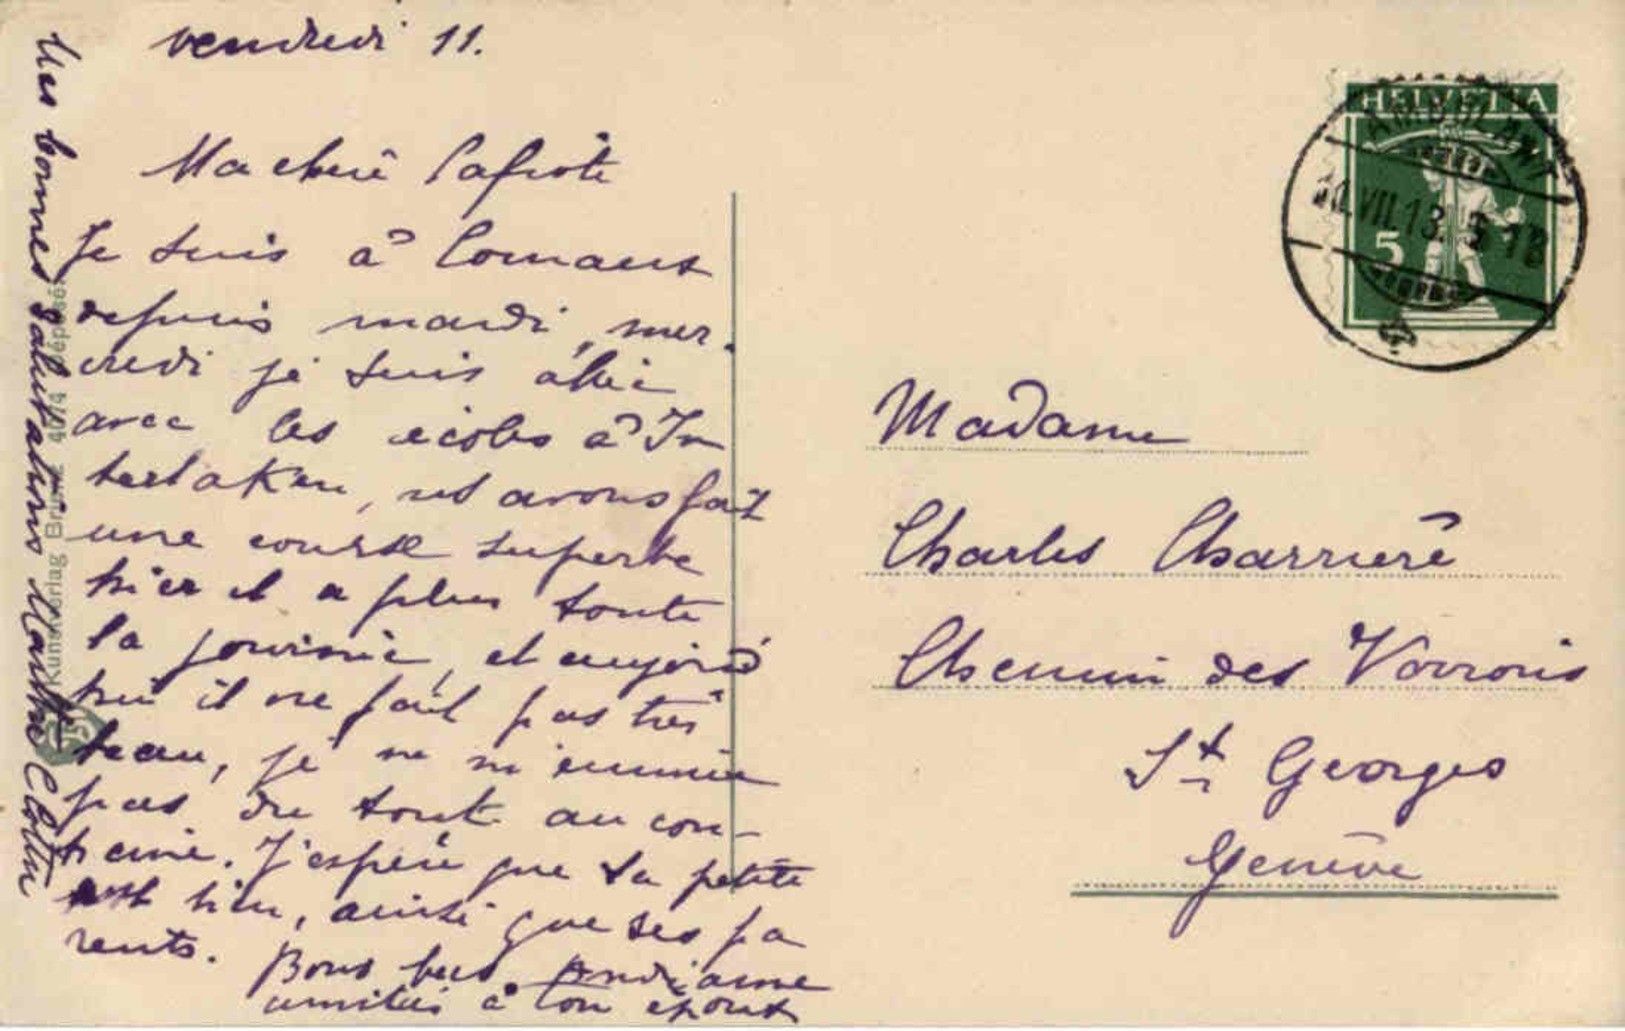 vendredi 11.
Ma chère
Je suis à Cornaux
depuis mardi, mer-
credi je suis allée
avec les écoles à In
terlaken, ns avons fait
une course superbe
hier il a plu toute
la journée, et aujourd
hui il ne fait pas très
beau, je ne m'ennuie
pas du tout au con-
traire. J'espère que la petite
est bien, ainsi que ses pa
rents.
Bons bec.
amitiés à ton époux
Mes bonnes salutations Clottu
Kunstverlag 4074 Déposé.
HELVETIA
5
AMBULANT
VII.13.
Madame
Charles Charrière
Chemin des
St Georges
Genève